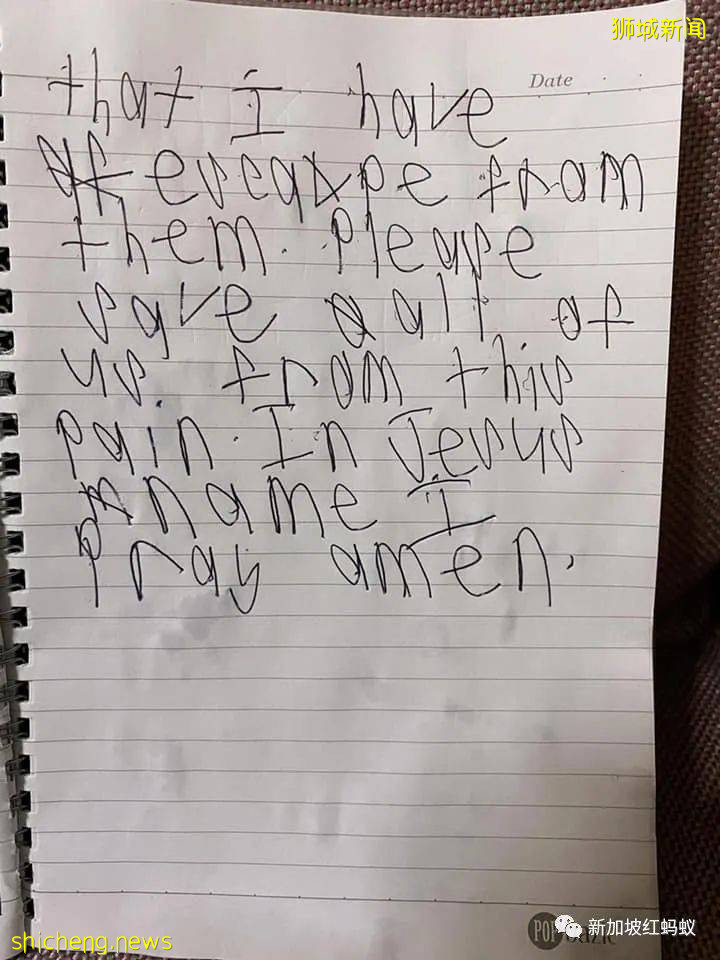 狮城新闻
Date
that I have
escape from
them. Please
save all of
us from this
pain. In Jesus
name I
pray amen.
POP bazic
新加坡红蚂蚁
shicheng.news